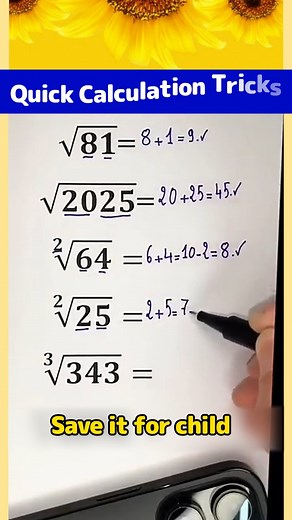 Quick Calculation Tricks
√81= 8+1=9.✓
√2025=20+25=45.✓
²√64 =6+4=10-2=8.✓
²√25 =2+5=7
³√343 =
Save it for child